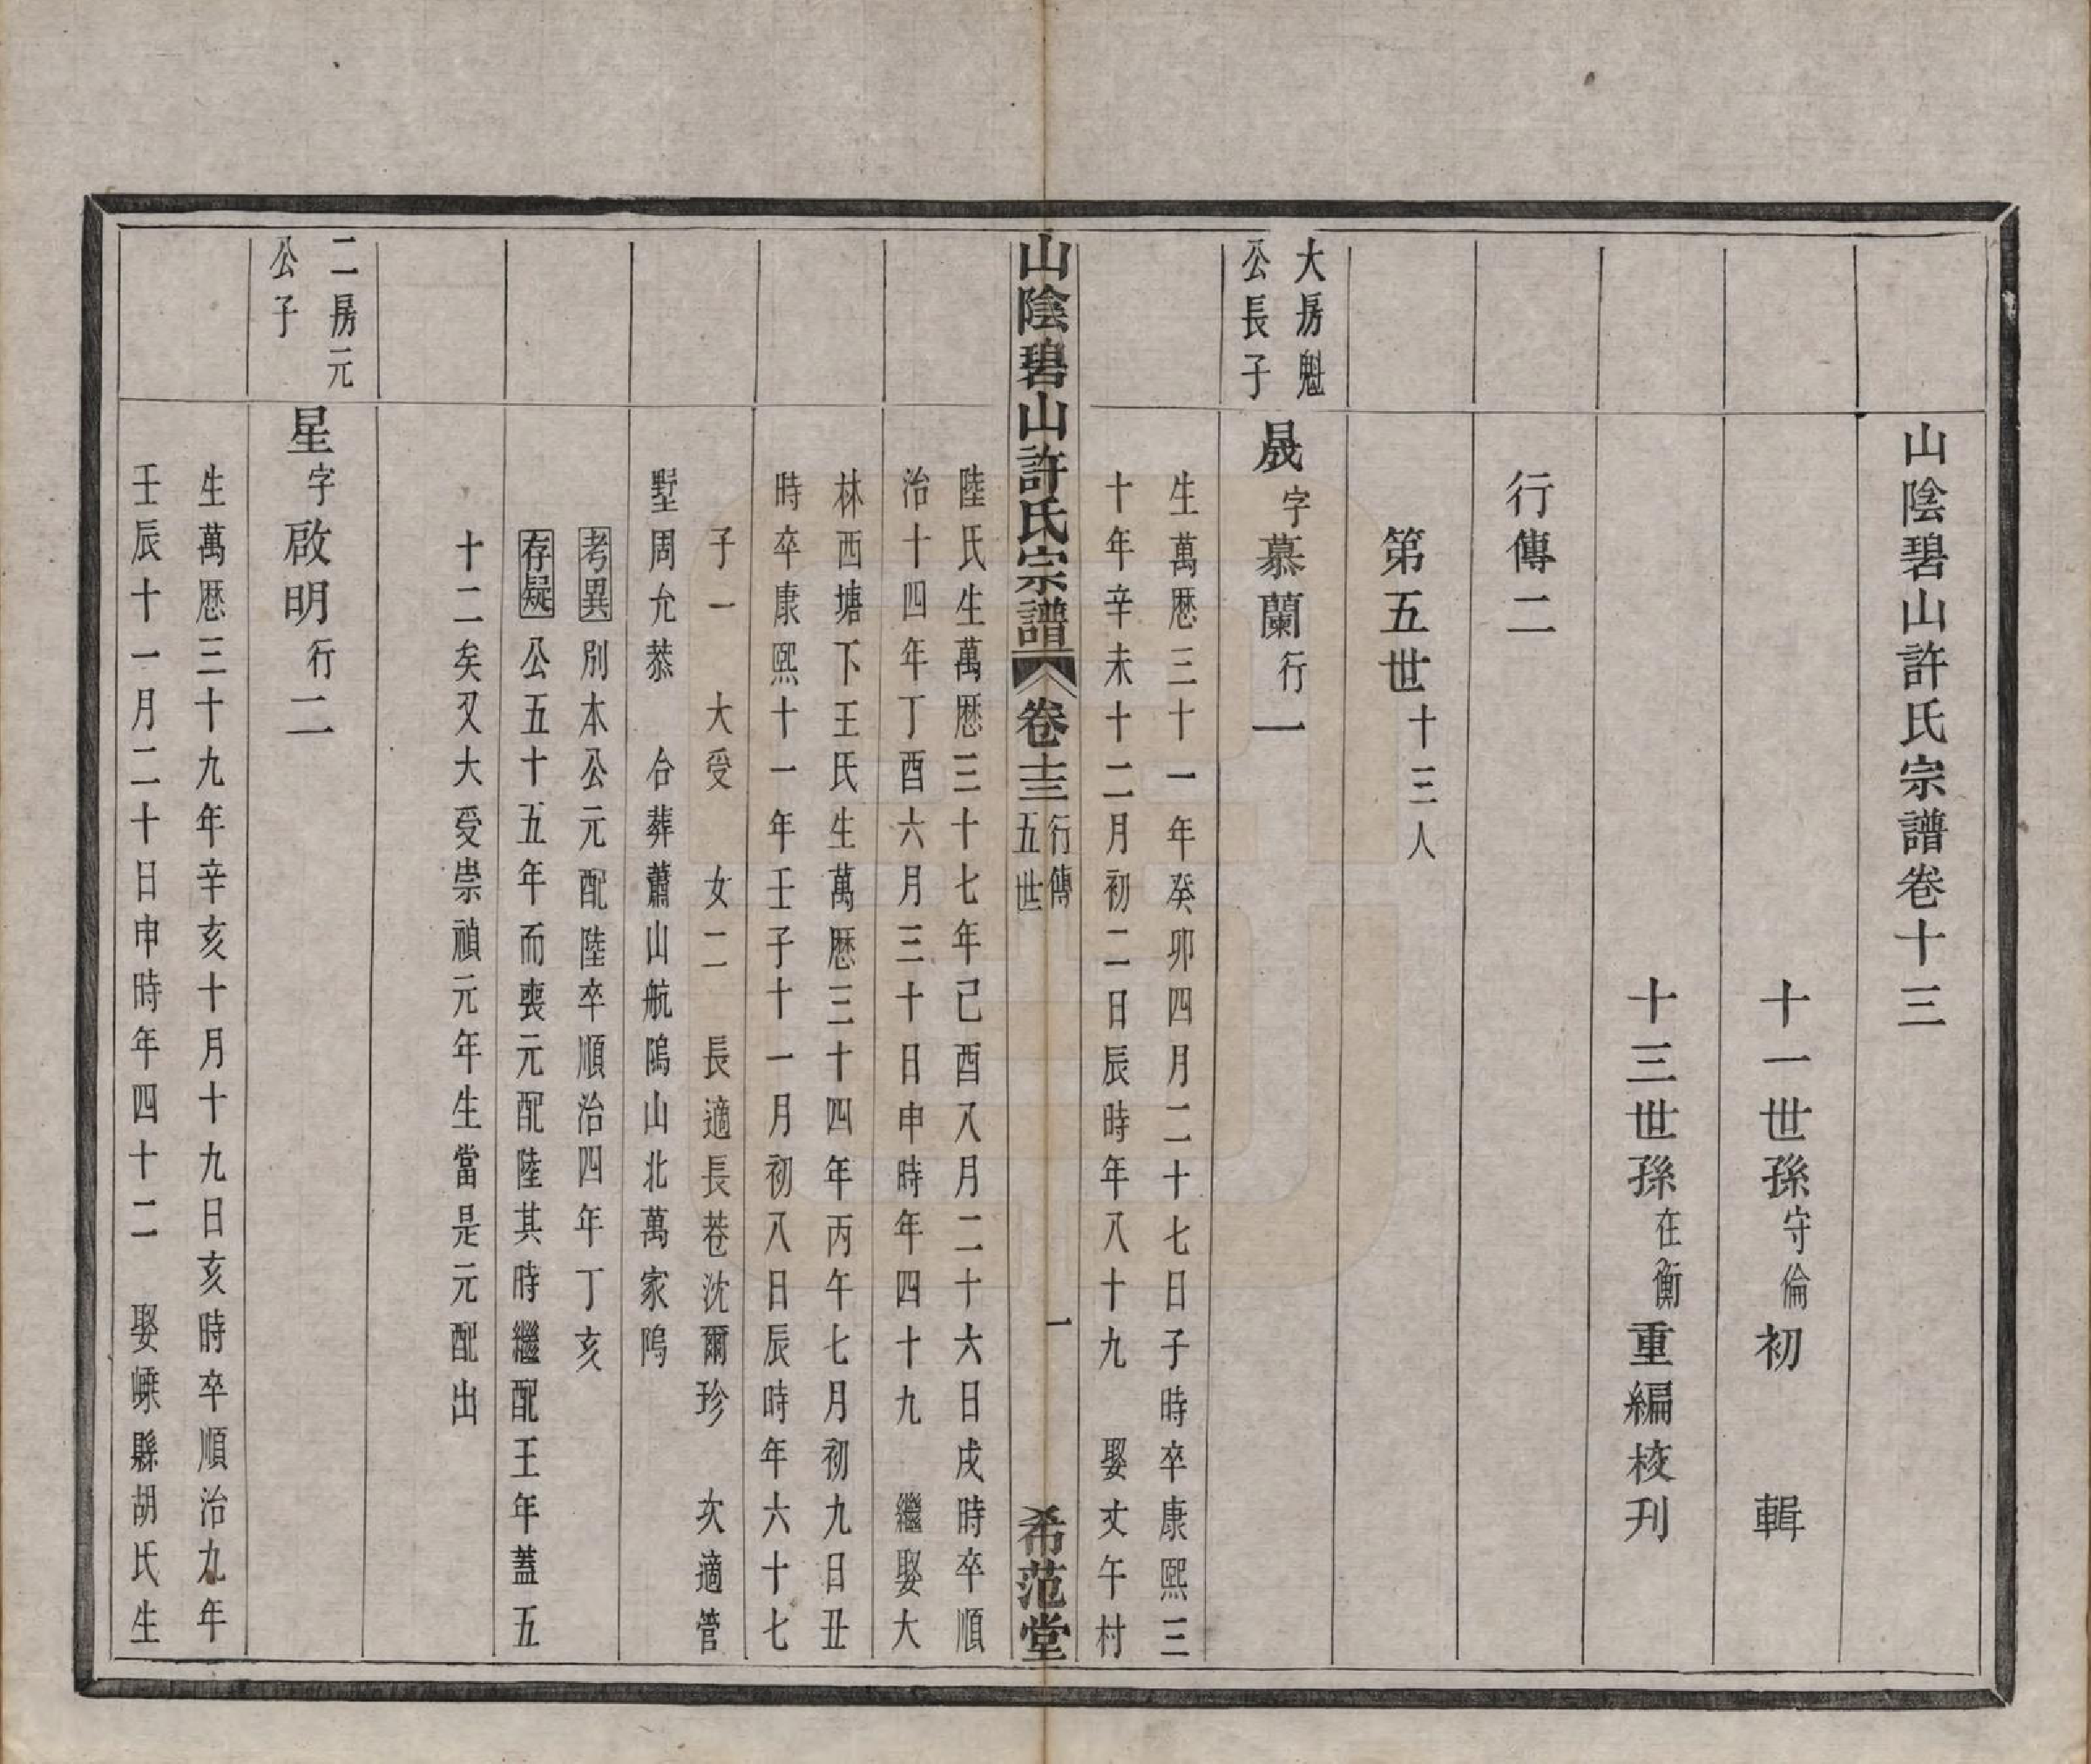 山陰碧山許氏宗譜卷十三
十一世孫守倫初　輯
十三世孫在衡重編校刊
行傳二
第五世十三人
大房魁
公長子
晟字慕蘭行一
生萬歷三十一年癸卯四月二十七日子時卒康熙三
十年辛未十二月初二日辰時年八十九　娶丈午村
山陰碧山許氏宗譜　卷十三　行傳　五世　一　希范堂
陸氏生萬歷三十七年己酉八月二十六日戌時卒順
治十四年丁酉六月三十日申時年四十九　繼娶大
林西塘下王氏生萬歷三十四年丙午七月初九日丑
時卒康熙十一年壬子十一月初八日辰時年六十七
子一　大受　女二　長適長巷沈爾珍　次適管
墅周允恭　合葬蕭山航隖山北萬家隖
考異別本公元配陸卒順治四年丁亥
存疑公五十五年而喪元配陸其時繼配王年蓋五
十二矣又大受崇禎元年生當是元配出
二房元
公子
星字啟明行二
生萬歷三十九年辛亥十月十九日亥時卒順治九年
壬辰十一月二十日申時年四十二　娶嵊縣胡氏生